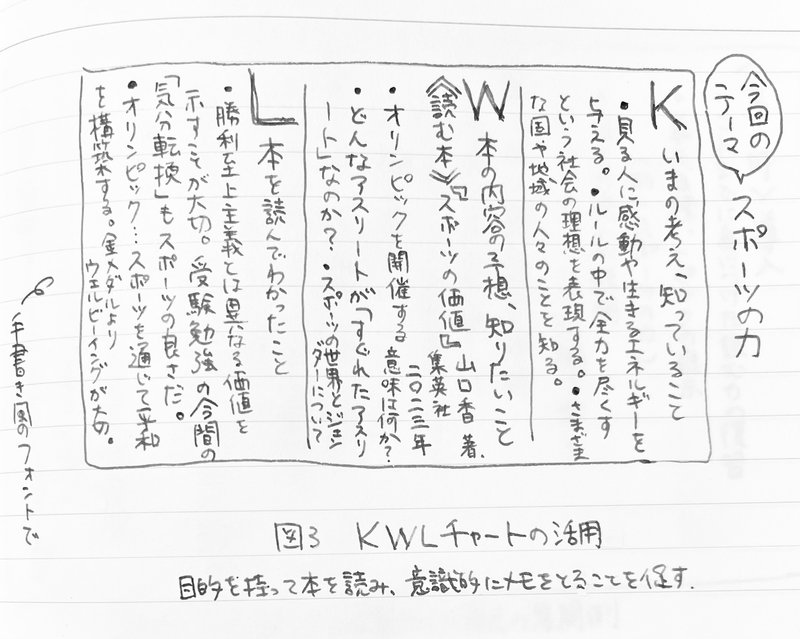 今回の
テーマ
スポーツの力
K いまの考え、知っていること
・見る人に感動や生きるエネルギーを
与える。・ルールの中で全力を尽くす
という社会の理想を表現する。・さまざま
な国や地域の人々のことを知る。
W 本の内容の予想、知りたいこと
《読む本》『スポーツの価値』山口香 著.
集英社
二〇二三年
・オリンピックを開催する意味は何か?
・どんなアスリートが「すぐれたアスリ
ート」なのか?・スポーツの世界とジェン
ダーについて
L 本を読んでわかったこと
・勝利至上主義とは異なる価値を
示すことが大切。受験勉強の合間の
「気分転換」もスポーツの良さだ。
・オリンピック…スポーツを通じて平和
を構築する。金メダルより
ウェルビーイングが大切。
手書き風のフォントで
図3 KWLチャートの活用
目的を持って本を読み、意識的にメモをとることを促す.